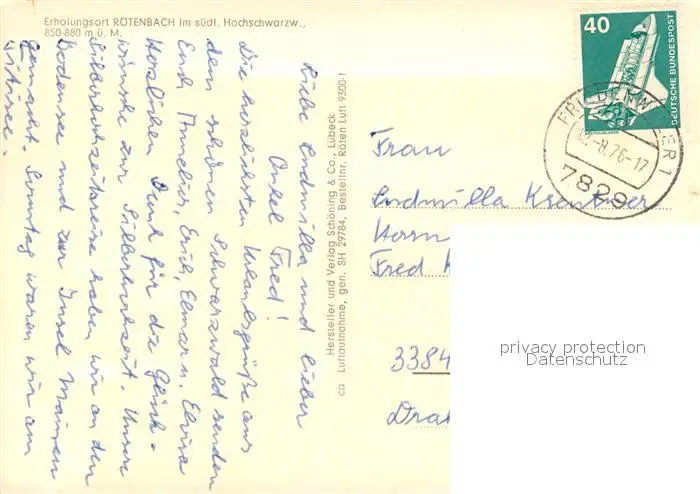 Erholungsort RÖTENBACH im südl. Hochschwarzw.,
850-880 m ü. M.
Liebe Ludmilla und lieber
Onkel Fred!
Die herzlichsten Urlaubsgrüße aus
dem schönen Schwarzwald senden
Euch Annelies, Erich, Elmar u. Elvira
Herzlichen Dank für die Glück-
wünsche zur Silberhochzeit. Unsere
Silberhochzeitsreise haben wir an den
Bodensee und zur Insel Mainau
gemacht. Sonntag waren wir am
Titisee.
Hersteller und Verlag Schöning & Co., Lübeck
ca Luftaufnahme, gen. SH 29784, Bestellnr. Röten Luft 9300-1
40
DEUTSCHE BUNDESPOST
-8.76-17
7829
Frau
Ludmilla
Herrn
Fred
3384
privacy protection
Datenschutz